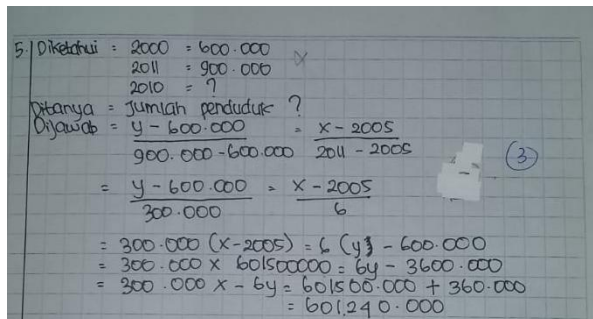 5. Diketahui = 2000 = 600.000
2011 = 900.000
2010 = ?
Ditanya = Jumlah penduduk ?
Dijawab = y - 600.000 / 900.000 - 600.000 = x - 2005 / 2011 - 2005
(3)
= y - 600.000 / 300.000 = x - 2005 / 6
= 300.000 (x - 2005) = 6 (y) - 600.000
= 300.000 x 601500000 = 6y - 3600.000
= 300.000 x - 6y = 601500.000 + 360.000
= 601.240.000